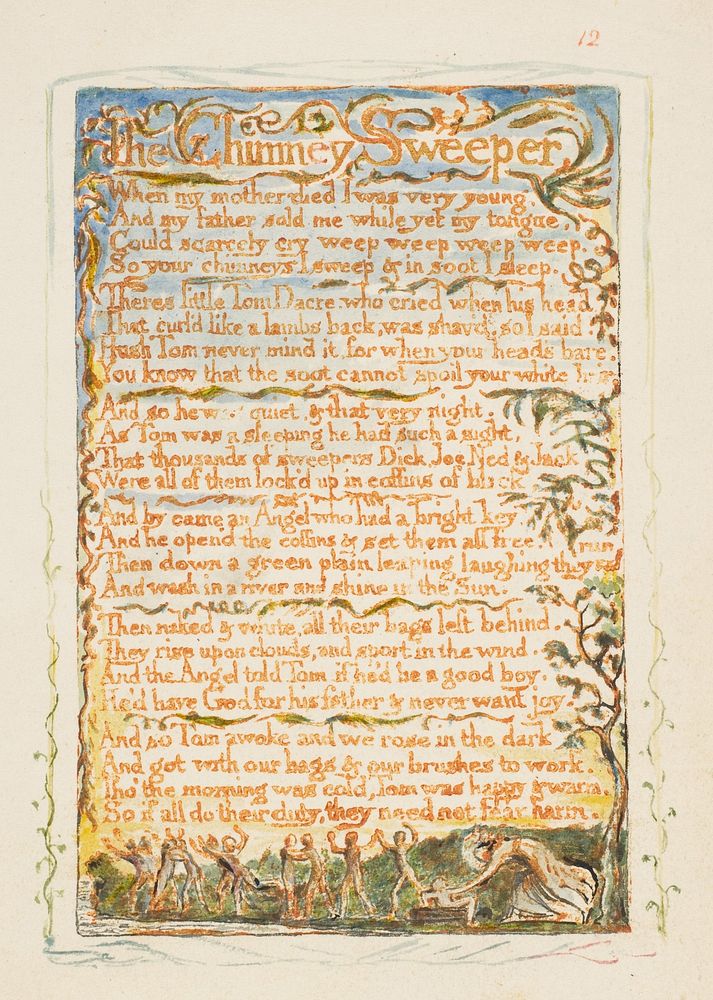 12
The Chimney Sweeper
When my mother died I was very young,
And my father sold me while yet my tongue,
Could scarcely cry weep weep weep weep.
So your chimneys I sweep & in soot I sleep.
Theres little Tom Dacre who cried when his head
That curl'd like a lambs back, was shav'd, so I said.
Hush Tom never mind it, for when your heads bare,
You know that the soot cannot spoil your white
And so he was quiet, & that very night.
As Tom was a sleeping he had such a sight,
That thousands of sweepers Dick, Joe, Ned & Jack
Were all of them lock'd up in coffins of black
And by came an Angel who had a bright key
And he open'd the coffins & set them all free.
Then down a green plain leaping laughing they run
And wash in a river and shine in the Sun.
Then naked & white, all their bags left behind.
They rise upon clouds, and sport in the wind.
And the Angel told Tom if he'd be a good boy,
He'd have God for his father & never want joy.
And so Tom awoke and we rose in the dark
And got with our bags & our brushes to work.
Tho' the morning was cold, Tom was happy & warm.
So if all do their duty, they need not fear harm.